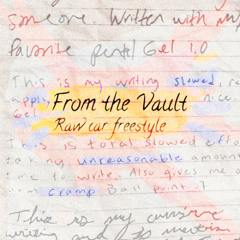 someone. Written with my
favorite pentel Gel 1.0
This is my writing slowed, re
apply nice.
Gel
From the Vault
Raw car freestyle
This is total slowed effo
unreasonable amoun
to write. Also gives me a
cramp Ball point
This is my cursive
writing and